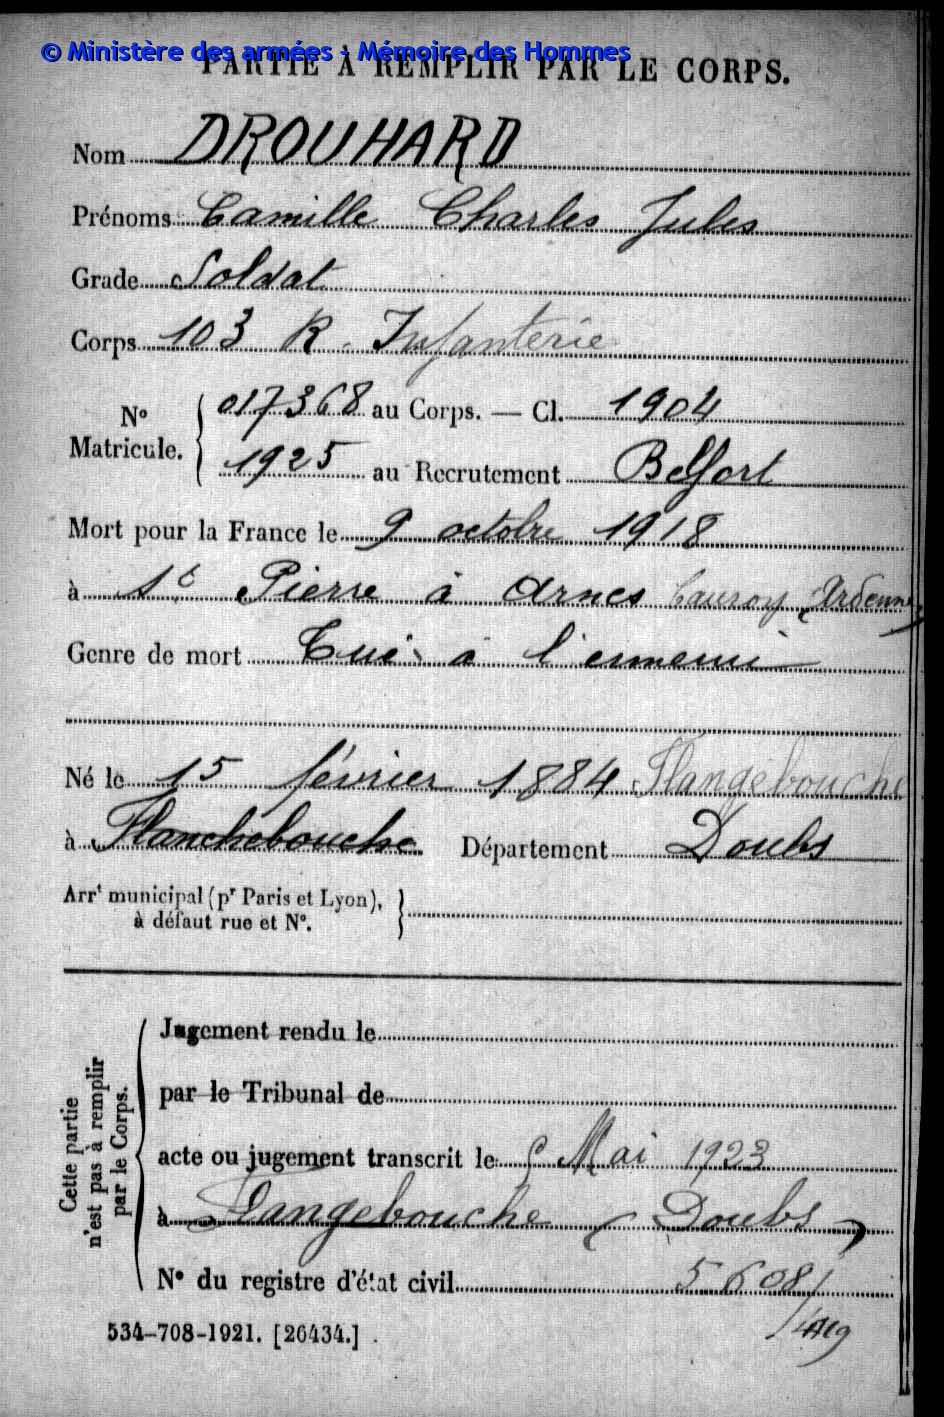 © Ministère des armées - Mémoire des Hommes
PARTIE À REMPLIR PAR LE CORPS.
Nom DROUHARD
Prénoms Camille Charles Jules
Grade Soldat
Corps 103 R. Infanterie
Nº Matricule. { 017368 au Corps. — Cl. 1904
1925 au Recrutement Belfort
Mort pour la France le 9 octobre 1918
à St Pierre à Arnes Cauroy (Ardennes)
Genre de mort Tué à l'ennemi
Né le 15 février 1884 Flangebouche
à Flanchebouche Département Doubs
Arrt municipal (pr Paris et Lyon), }
à défaut rue et Nº.
Cette partie n'est pas à remplir par le Corps.
Jugement rendu le
par le Tribunal de
acte ou jugement transcrit le Mai 1923
à Flangebouche (Doubs)
Nº du registre d'état civil 5608/
534-708-1921. [26434.]